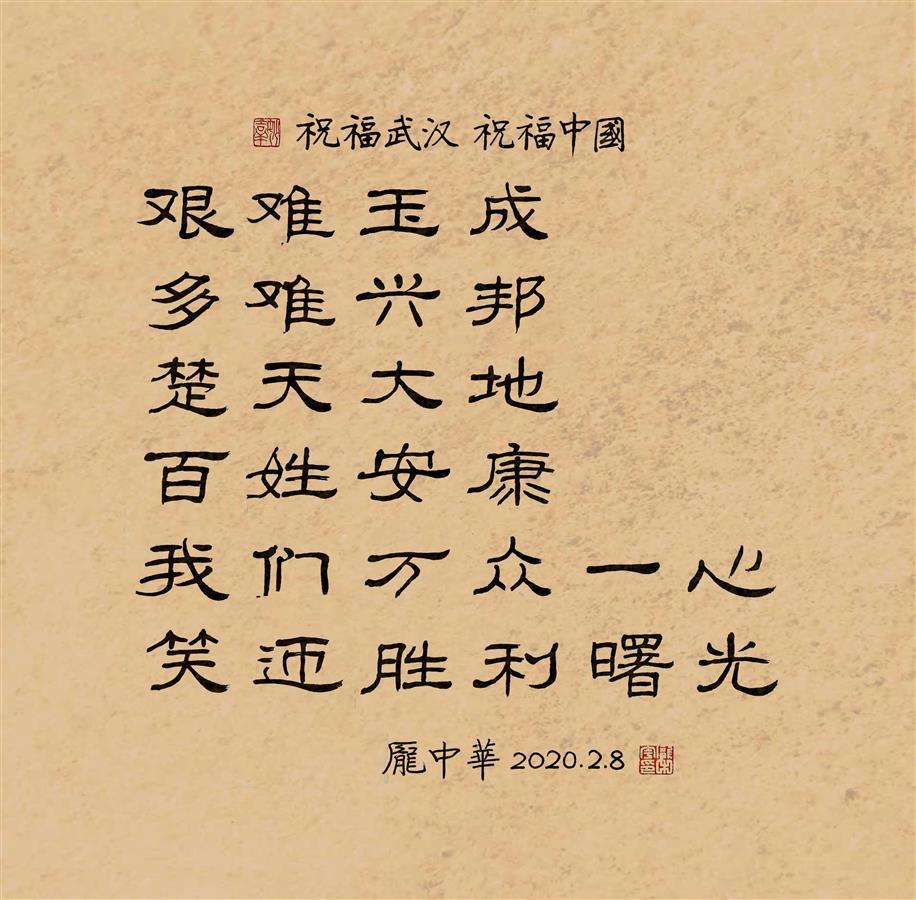 祝福武汉 祝福中國
艰难玉成
多难兴邦
楚天大地
百姓安康
我们万众一心
笑迎胜利曙光
龐中華 2020.2.8